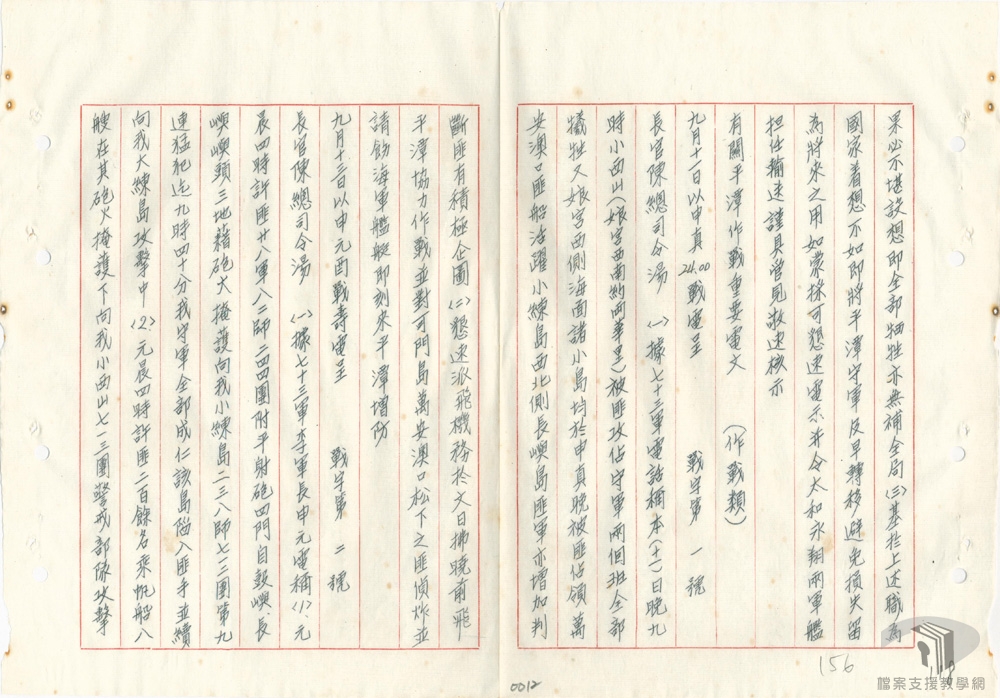 果必不堪設想即全部犧牲亦無補全局(三)基於上述職為
國家着想不如即將平潭守軍及早轉移避免損失留
為將來之用如蒙採可懇速電示并令太和永翔兩軍艦
担任輸送謹具管見敬速核示
有關平潭作戰重要電文 (作戰類)
九月十一日以申真24.00戰電呈 戰字第 一 號
長官陳總司令湯 (一)據七十三軍電話稱本(十一)日晚九
時小西山(娘宮西南約兩華里)被匪攻佔守軍兩個班全部
犧牲又娘宮西側海面諸小島均於申真晚被匪佔領萬
安澳口匪船活躍小練島西北側長嶼島匪軍亦增加判
斷匪有積極企圖(二)懇速派飛機務於文日拂曉前飛
平潭協力作戰並對可門島萬安澳口松下之匪偵炸並
請飭海軍艦艇即刻來平潭增防
九月十三日以申元酉戰壽電呈 戰字第 二 號
長官陳總司令湯 (一)據七十三軍李軍長申元電稱(1)元
晨四時許匪廿八軍八二師二四四團附平射砲四門自鼓嶼長
嶼嶼頭三地藉砲火掩護向我小練島二三八師七一三團第九
連猛犯迄九時四十分我守軍全部成仁該島陷入匪手並續
向我大練島攻擊中(2)元晨四時許匪二百餘名乘帆船八
艘在其砲火掩護下向我小西山七一三團警戒部隊攻擊
0012
156
檔案支援教學網